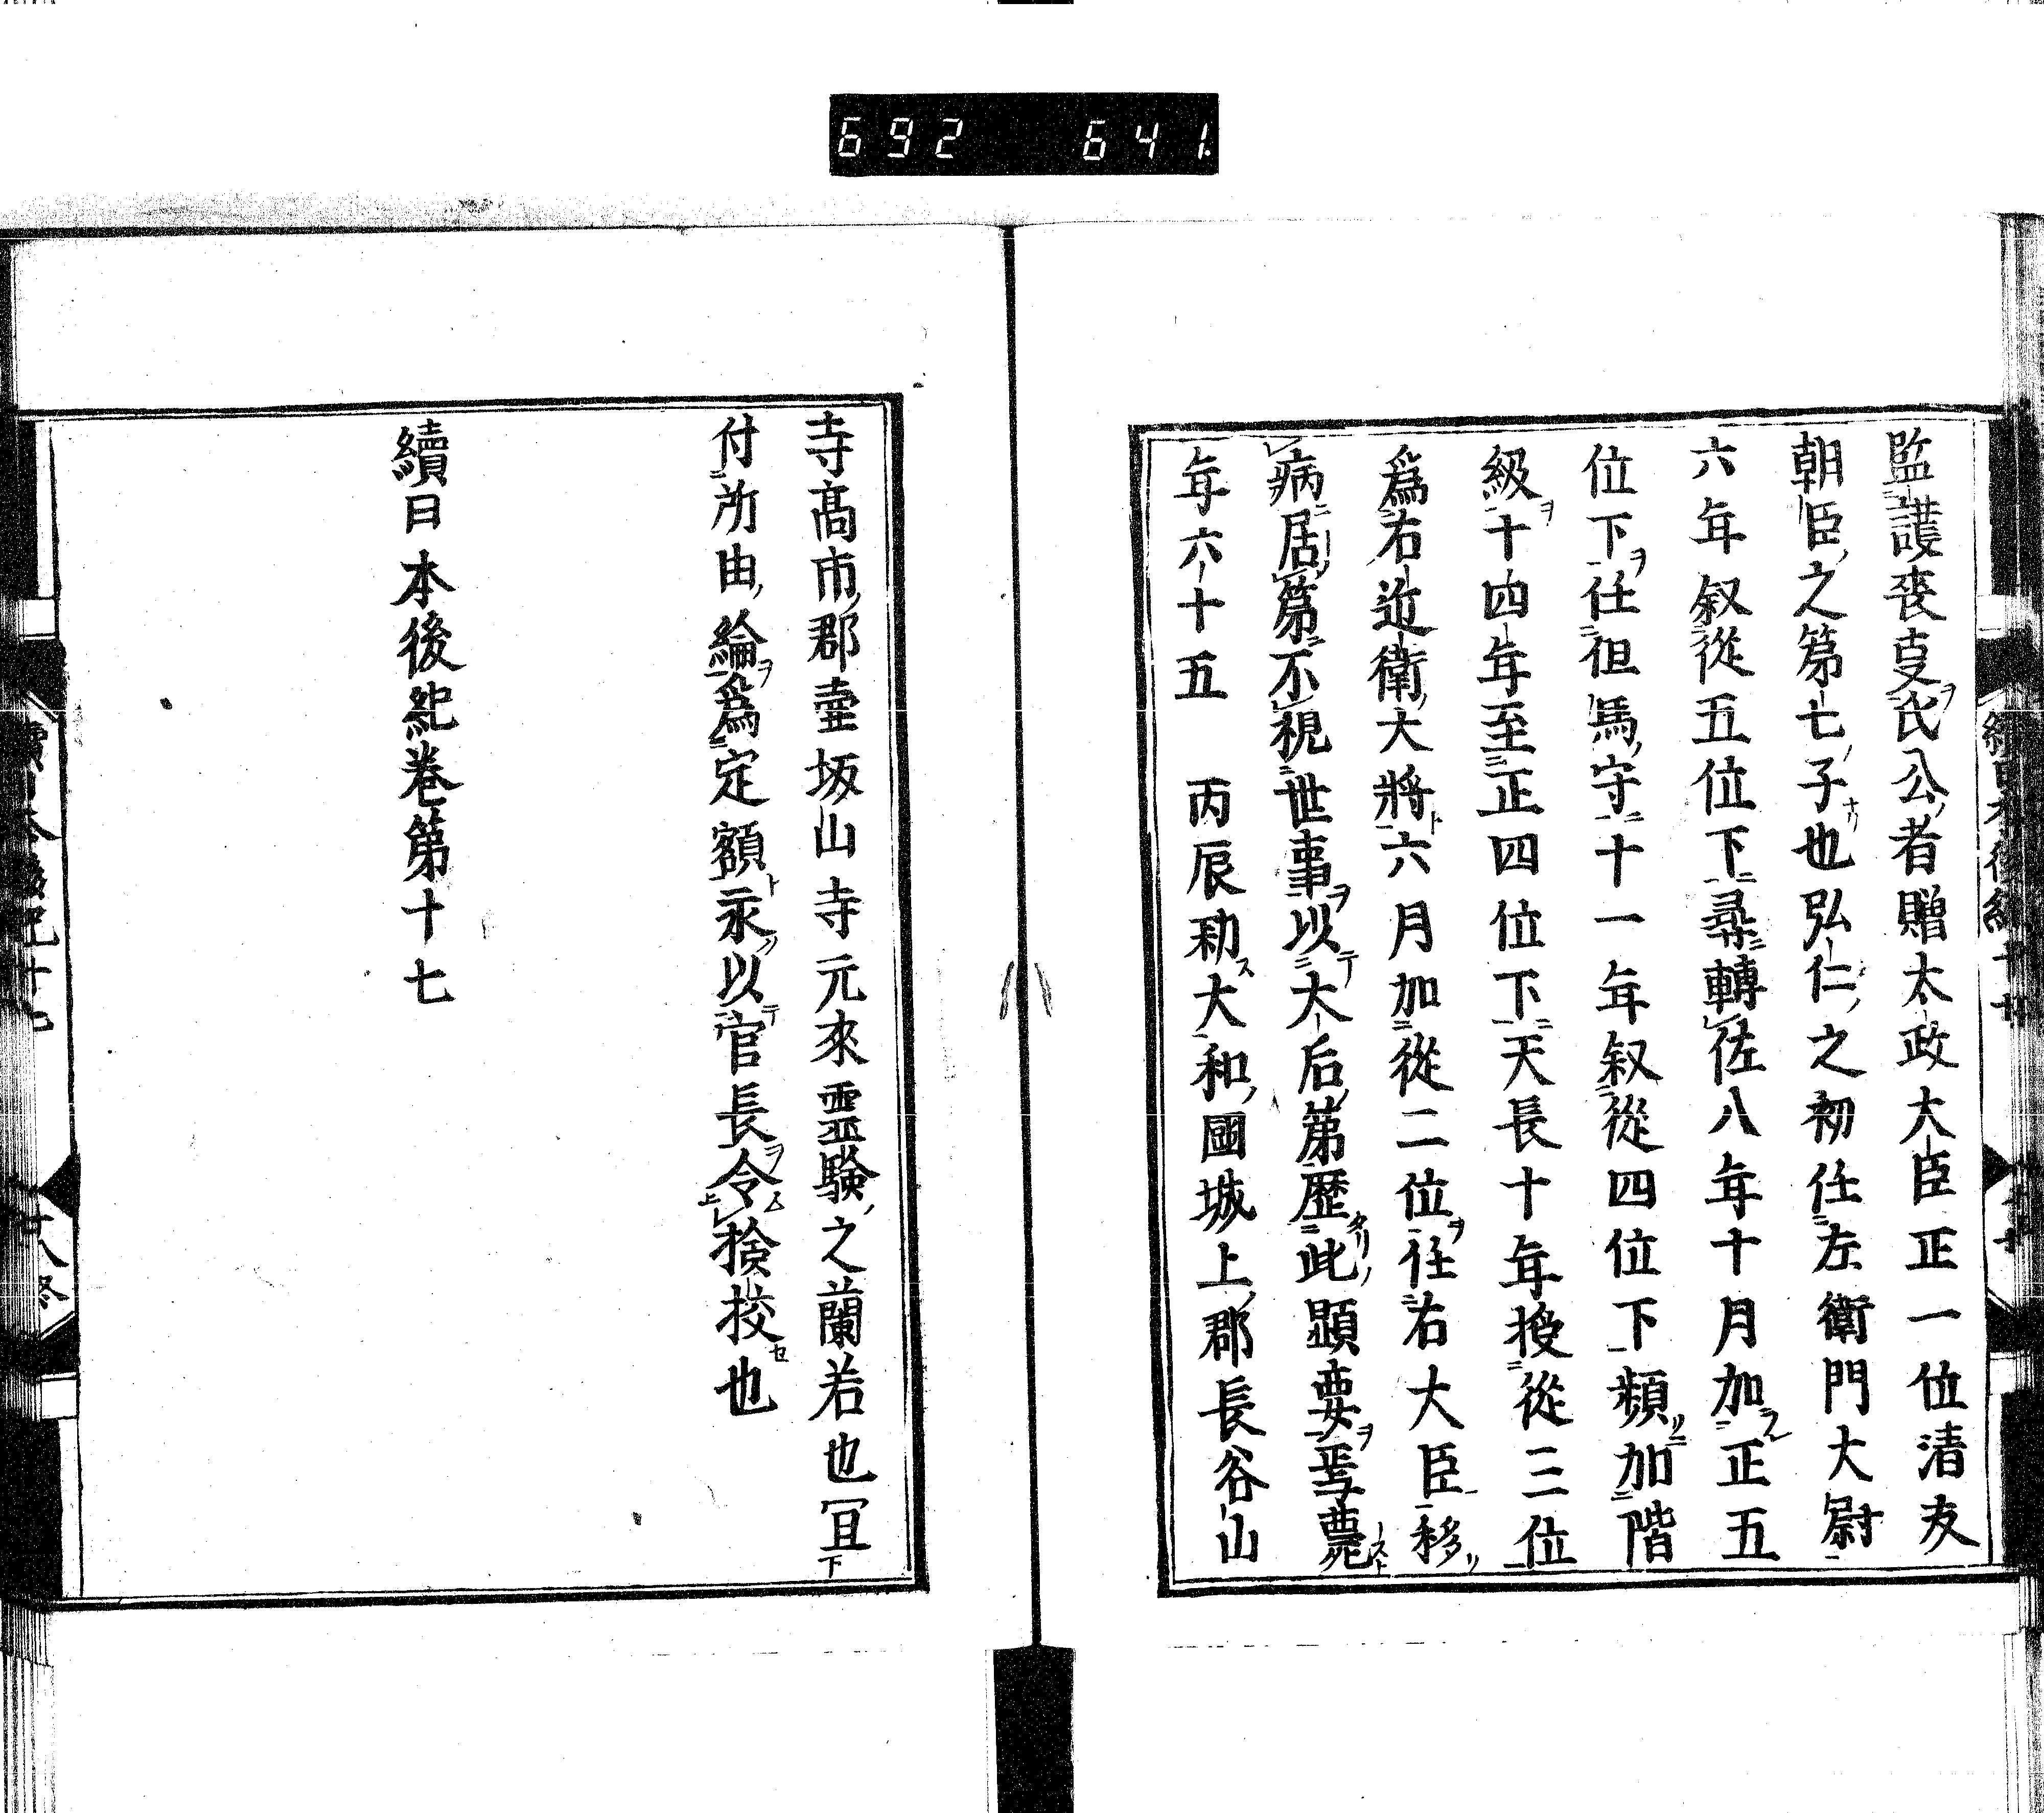 692 641
監護喪事氏公者贈太政大臣正一位清友
朝臣之第七子也弘仁之初任左衛門大尉
六年叙從五位下尋轉佐八年十月加正五
位下任但馬守十一年叙從四位下頻加階
級十四年至正四位下天長十年授從三位
爲右近衛大將六月加從二位任右大臣移
病居第不視世事以大后第歴此顕要焉薨
年六十五　丙辰勅大和國城上郡長谷山
寺髙市郡壷坂山寺元來霊驗之蘭若也冝
付所由綸爲定額永以官長令捡校也
續日本後紀巻第十七